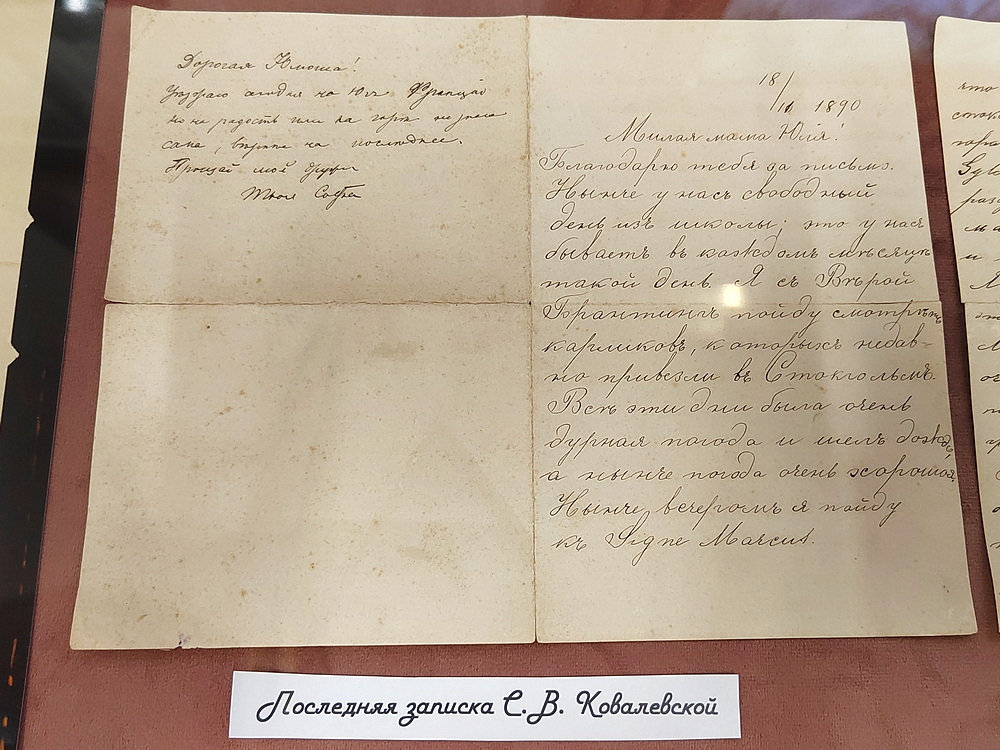 Дорогая Юлюша!
Уезжаю сегодня на Югъ Франціи
но на радость или на горе не знаю
сама, вѣрнѣе на последнее.
Прощай мой другъ
Твоя Софа
18/11 1890
Милая мама Юлія!
Благодарю тебя за письмо.
Нынче у насъ свободный
день изъ школы; это у насъ
бываетъ въ каждомъ мѣсяцѣ
такой день. Я съ Вѣрой
Брантингъ пойду смотрѣть
карликовъ, которыхъ недав-
но привезли въ Стокгольмъ.
Всѣ эти дни была очень
дурная погода и шелъ дождь,
а нынче погода очень хорошая.
Нынче вечеромъ я пойду
къ Signe Marcus.
что
Последняя записка С. В. Ковалевской